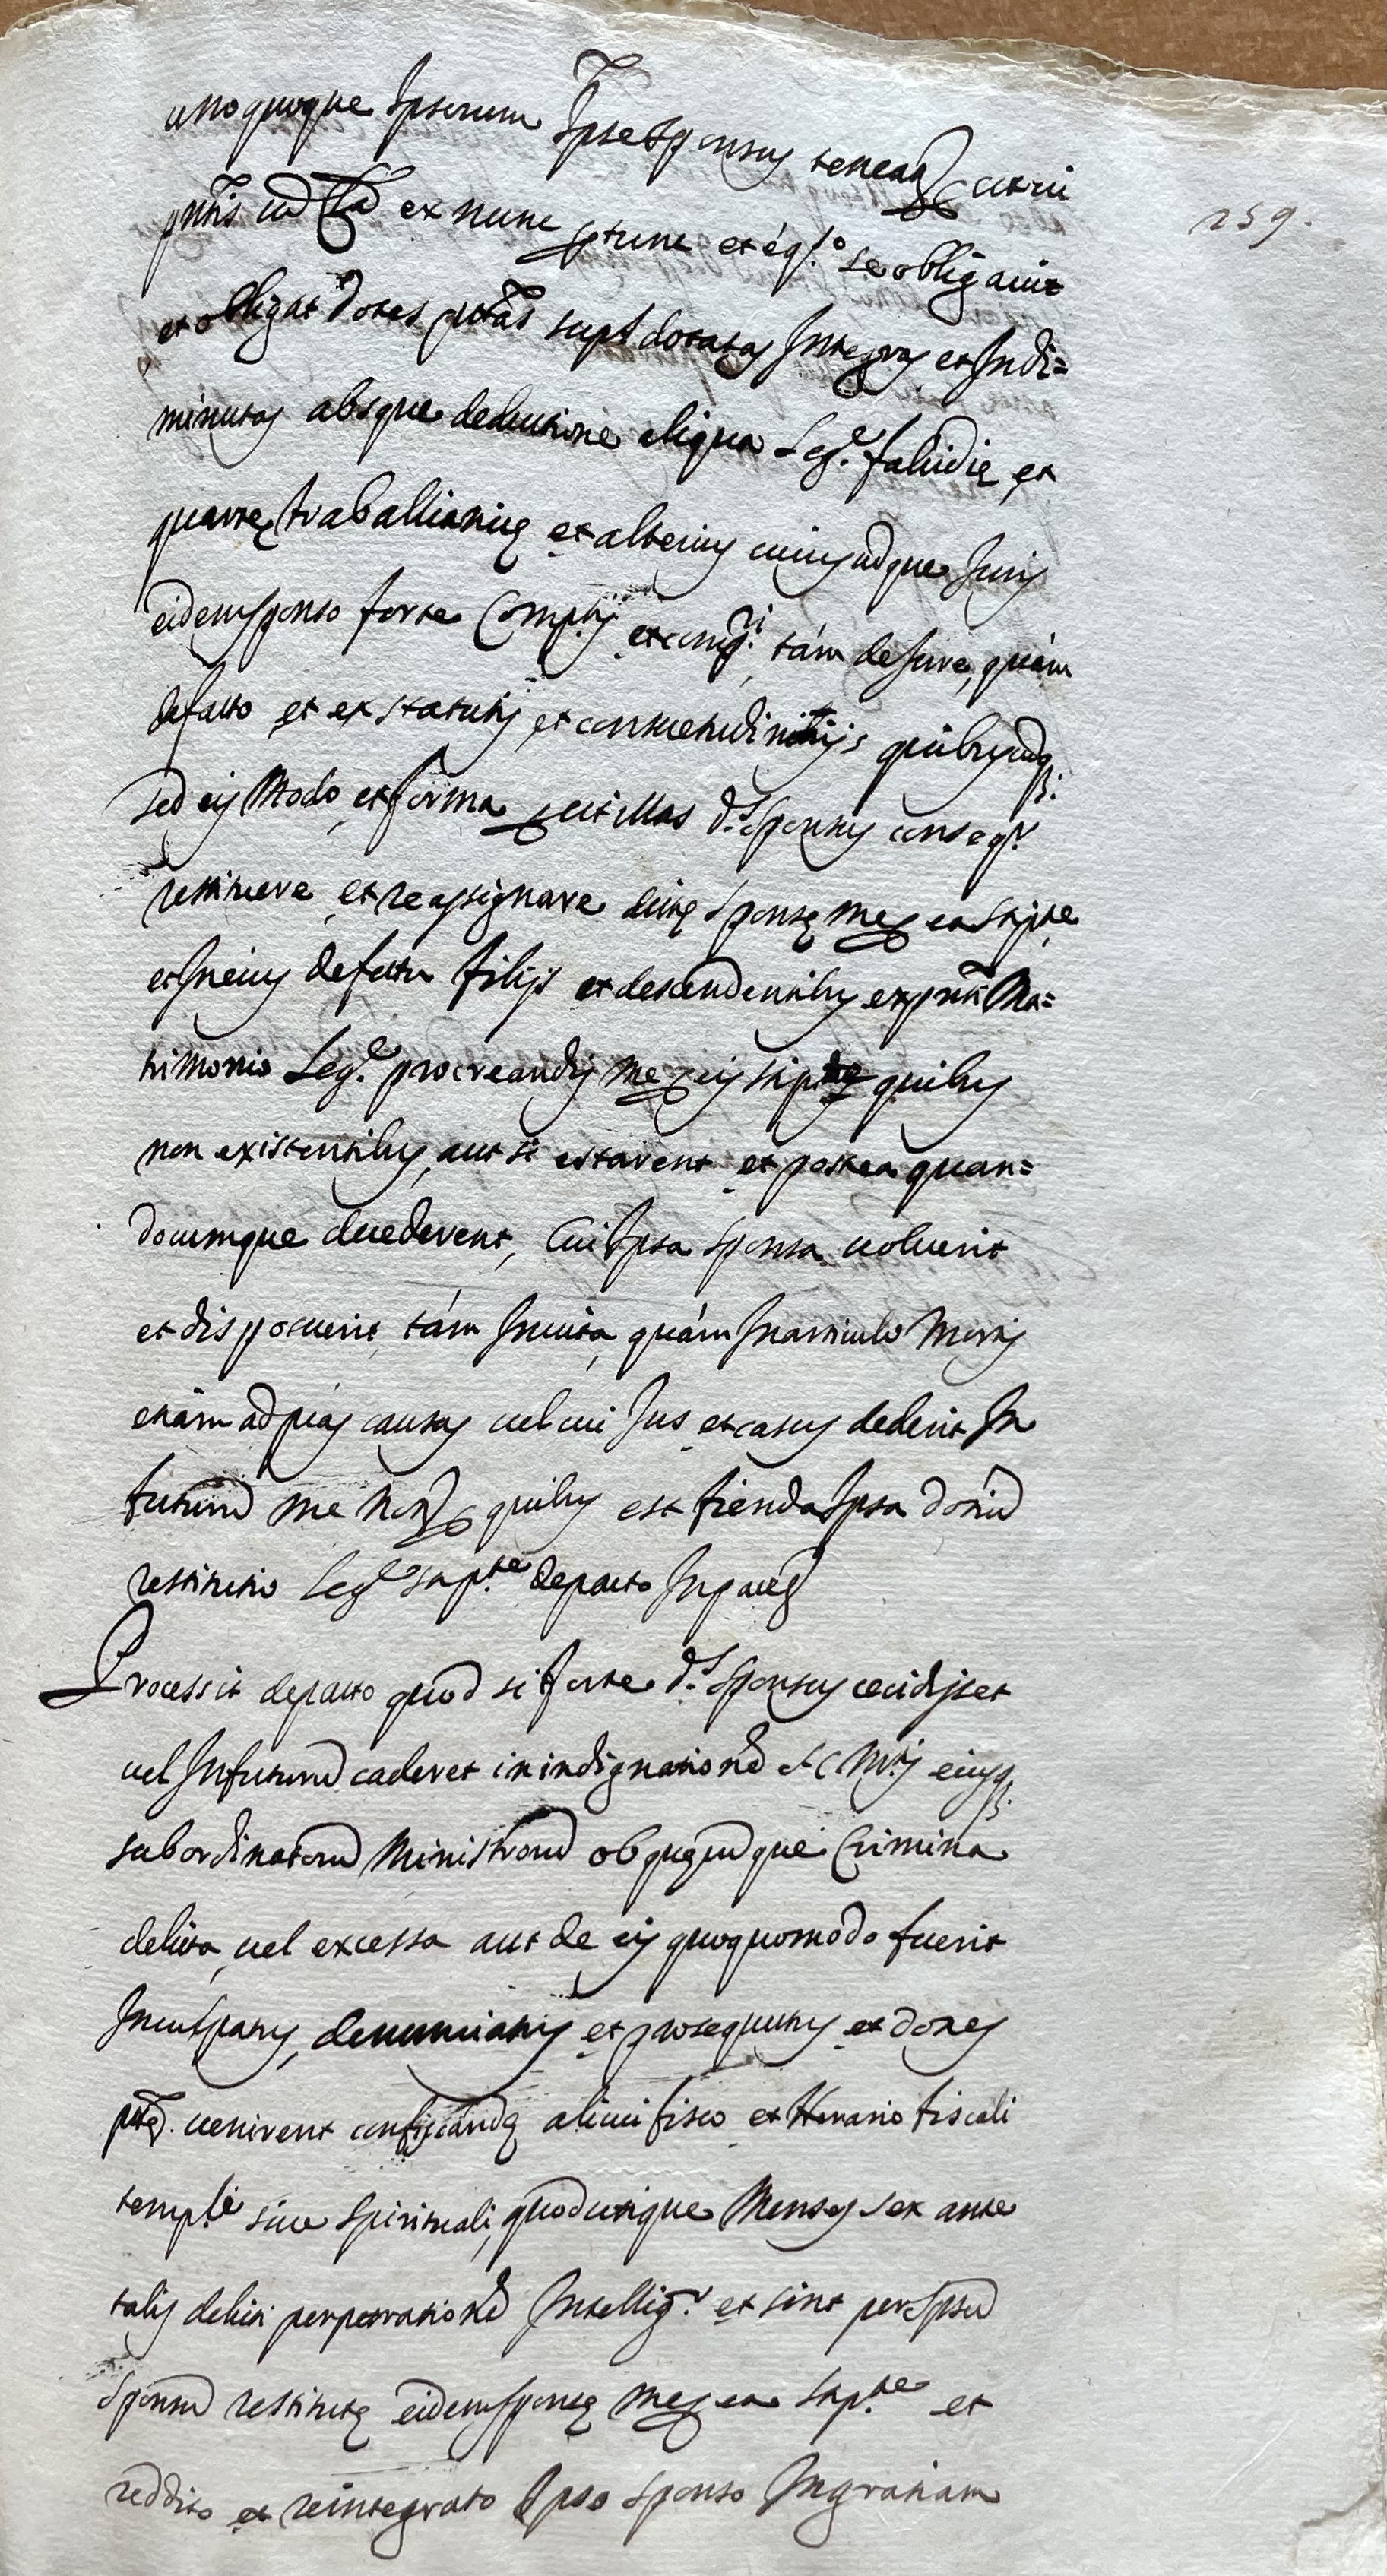 unoquoque Ipsorum Ipse Sponsus teneatr
259.
ex nunc ptunc et é se obligauit
et obligat dotes supt dotatas Integras et Indi=
minutas absque deductione aliqua Leg.e falcidie et
quarte traballianice et alterius cuiuscudque Juris
eidem sponso forte tám de Jure, quám
de facto et ex statutis et consuetudinibus quibuscuq3.
sed eis Modo et forma illas d.s Sponsus conseq.r
restituere et reassignare dicte Sponse
et In eius defectu filijs et descendentibus ex Ma=
trimonio Leg.e procreandis me eis quibus
non existentibus, aut si extarent et postea quan=
documque decederent, Cui Ipsa Sponsa uoluerit
et disposuerit tám In uita, quám In articulo Mortis
etiám ad pias causas uel cui Jus et casus dederit In
futurũ quibus est fienda Ipsa dotiũ
restitutio Leg.e sup.te de pacto
Processit de pacto quod si forte d.s Sponsus cecidisset
uel In futurũ caderet in indignationẽ eiusq3.
subordinatorũ Ministrorũ ob quecũque Crimina
delicta, uel excessa aut de eis quoquomodo fuerit
Inculpatus, denunciatus et prosequutus et dotes
uenirent confiscande alicui fisco et Herario fiscali
temp.li siue Spirituali, quod utique Menses sex ante
talis delicti perpetrationẽ Intellig.r et sint per Ipsũ
Sponsũ restitute eidem sponse et
reddito et reintegrato Ipso Sponso In gratiam